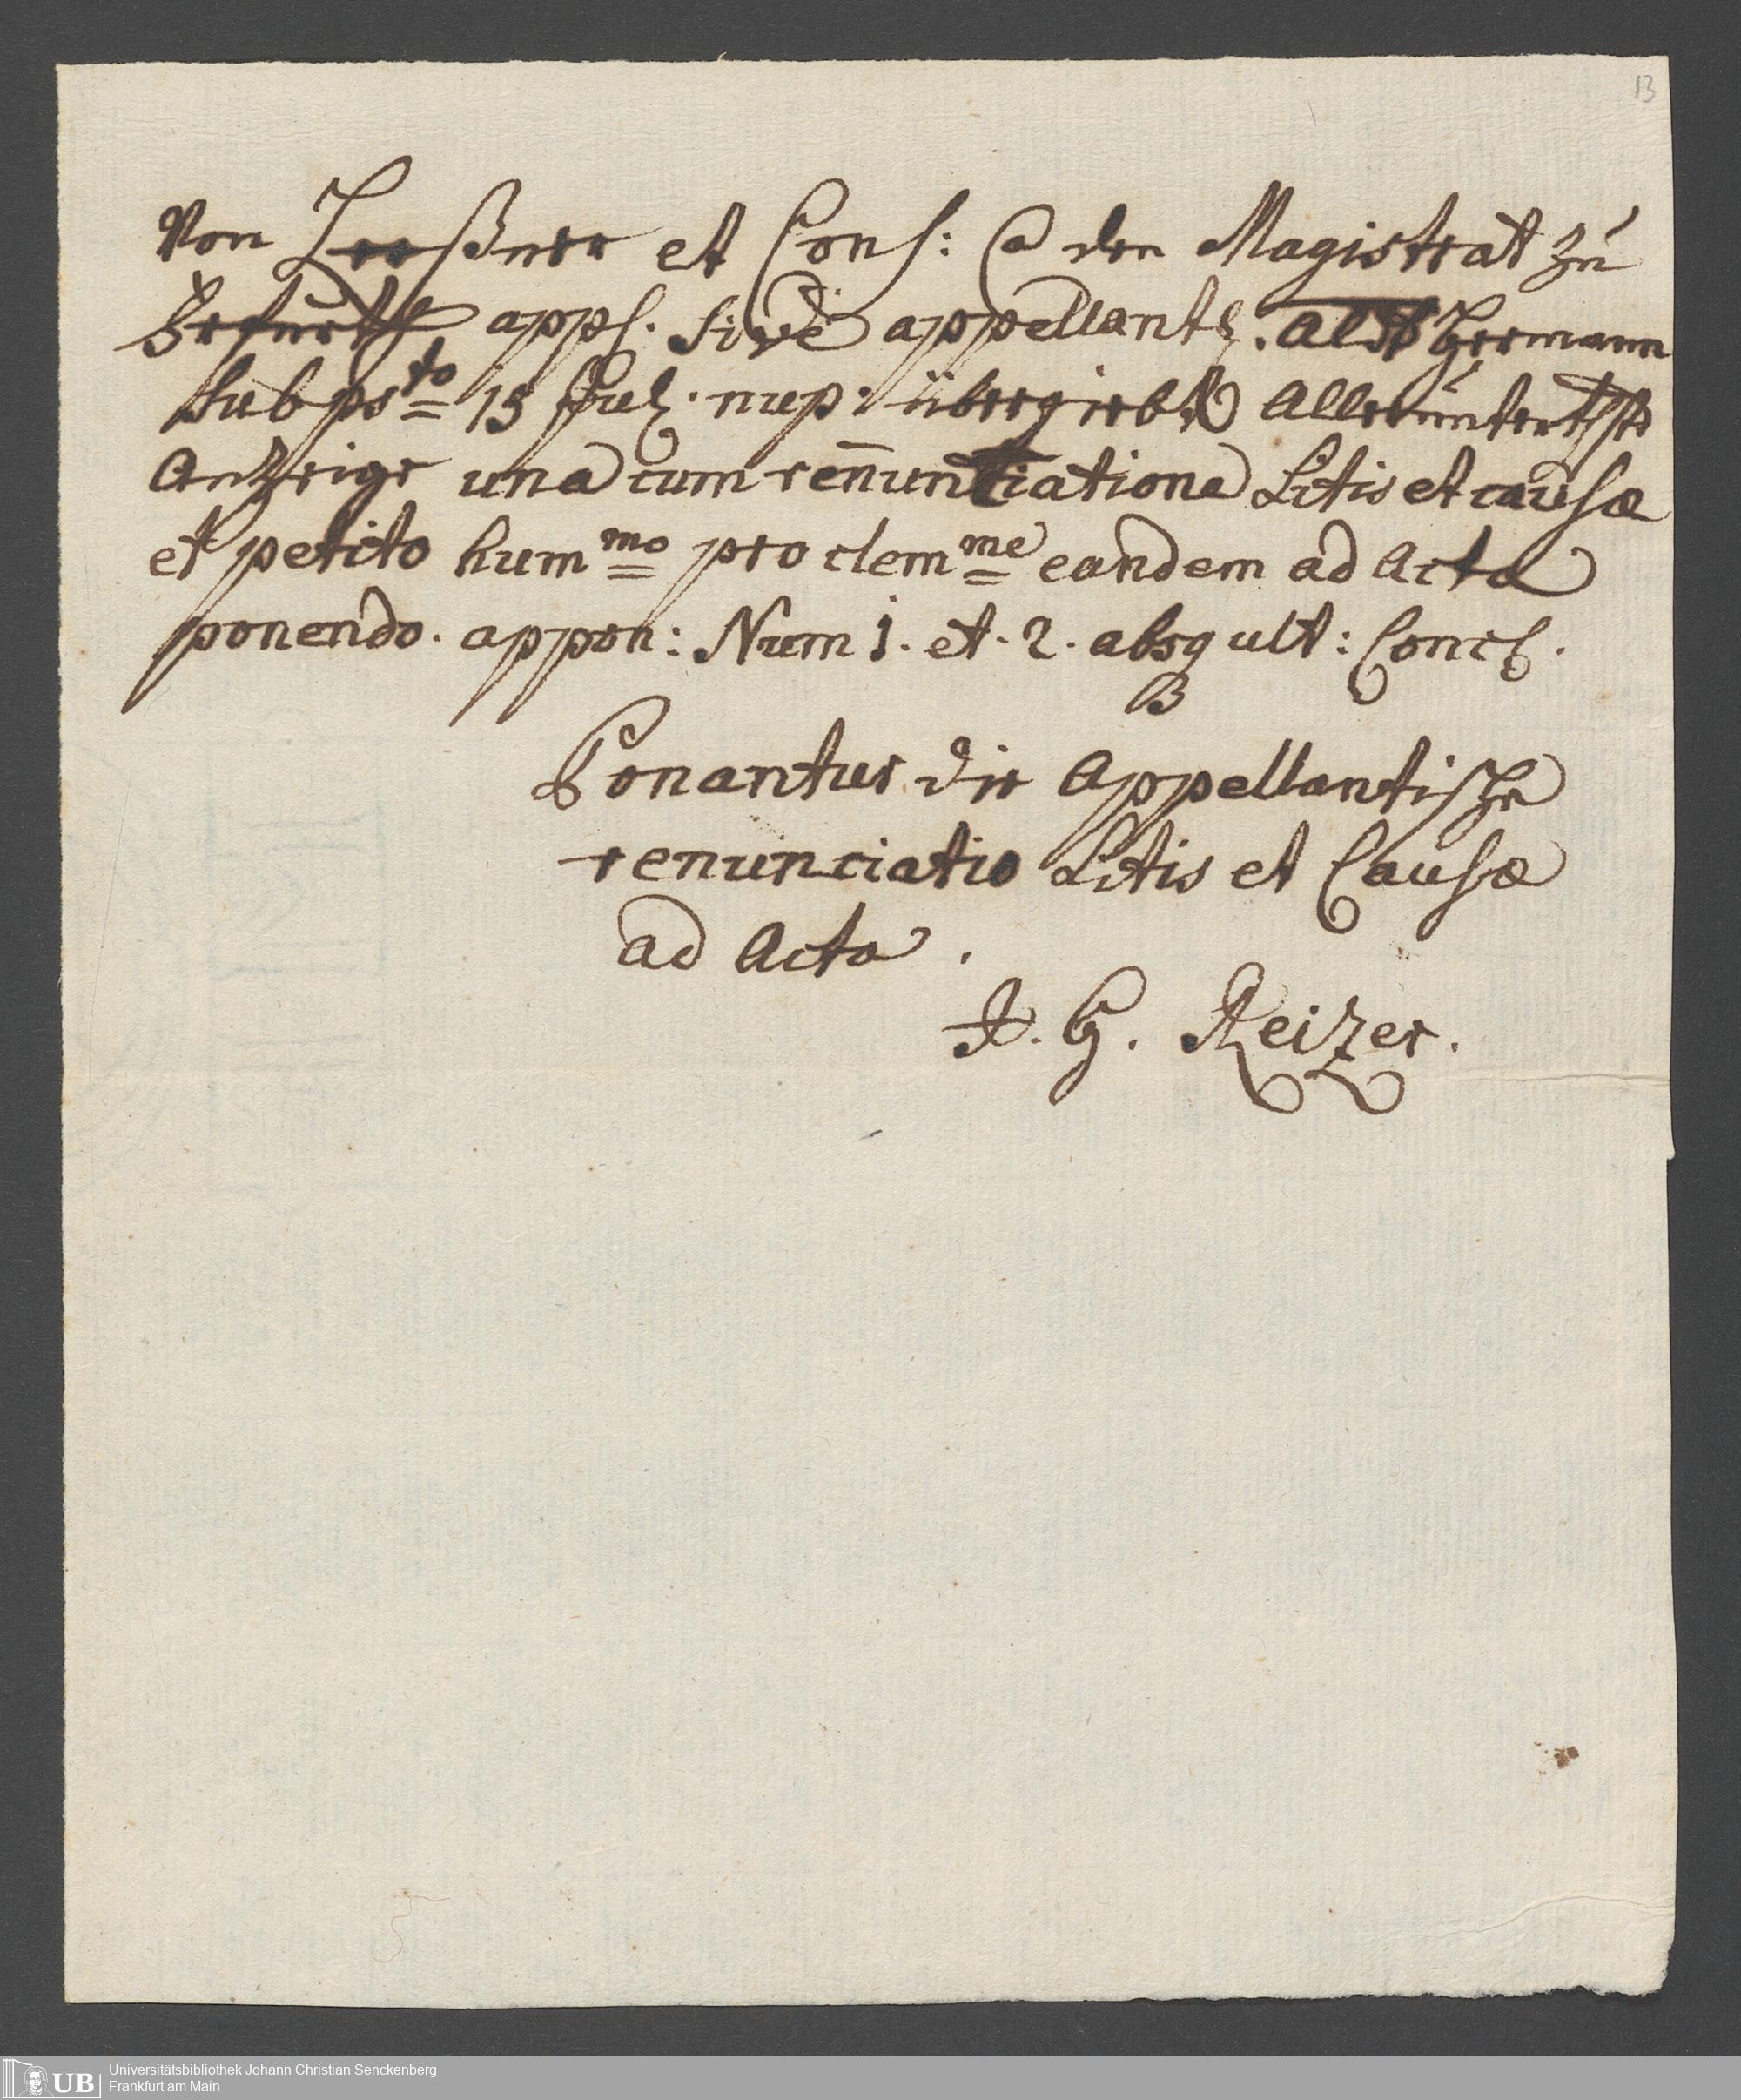 13
Von Leeßner et Cons: Ca den Magistrat zu
Erfurth appl. sive appellantl. Alst Hermann
sub psto 15 Jul. nup. übergiebt Allerunterthste
Anzeige una cum renuntiatione Litis et causæ
et petito hummo pro clemme eandem ad Acta
ponendo. appon: Num 1. et. 2. absq ult: Concl.
Ponantur die Appellantische
renunciatio Litis et Causæ
ad Acta.
F. G. Reizer.
UB Universitätsbibliothek Johann Christian Senckenberg
Frankfurt am Main